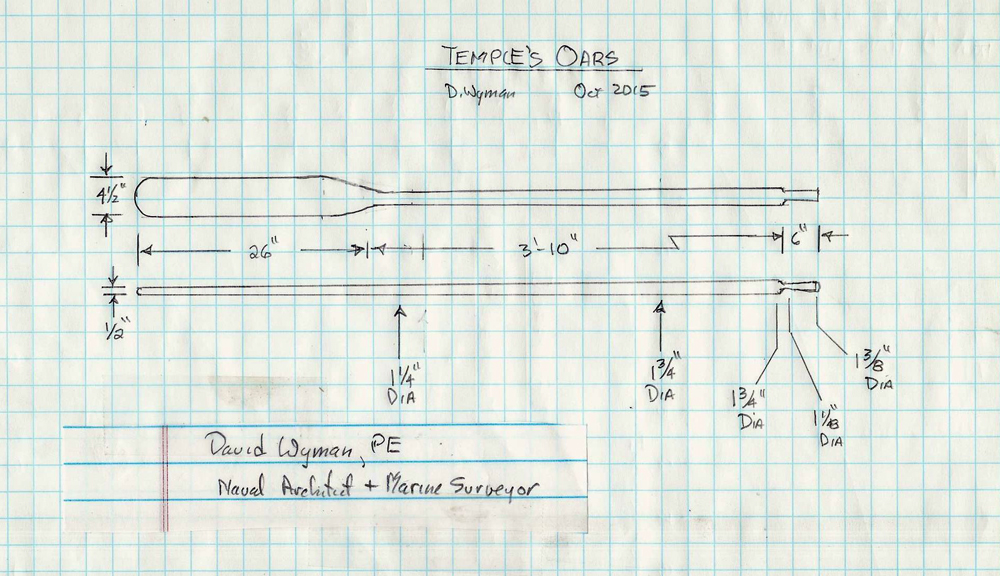 TEMPLE'S OARS
D. Wyman Oct 2015
4½"
26"
3'-10"
6"
½"
1¼"
DIA
1¾"
DIA
1¾"
DIA
1⅛"
DIA
1⅜"
DIA
David Wyman, PE
Naval Architect + Marine Surveyor